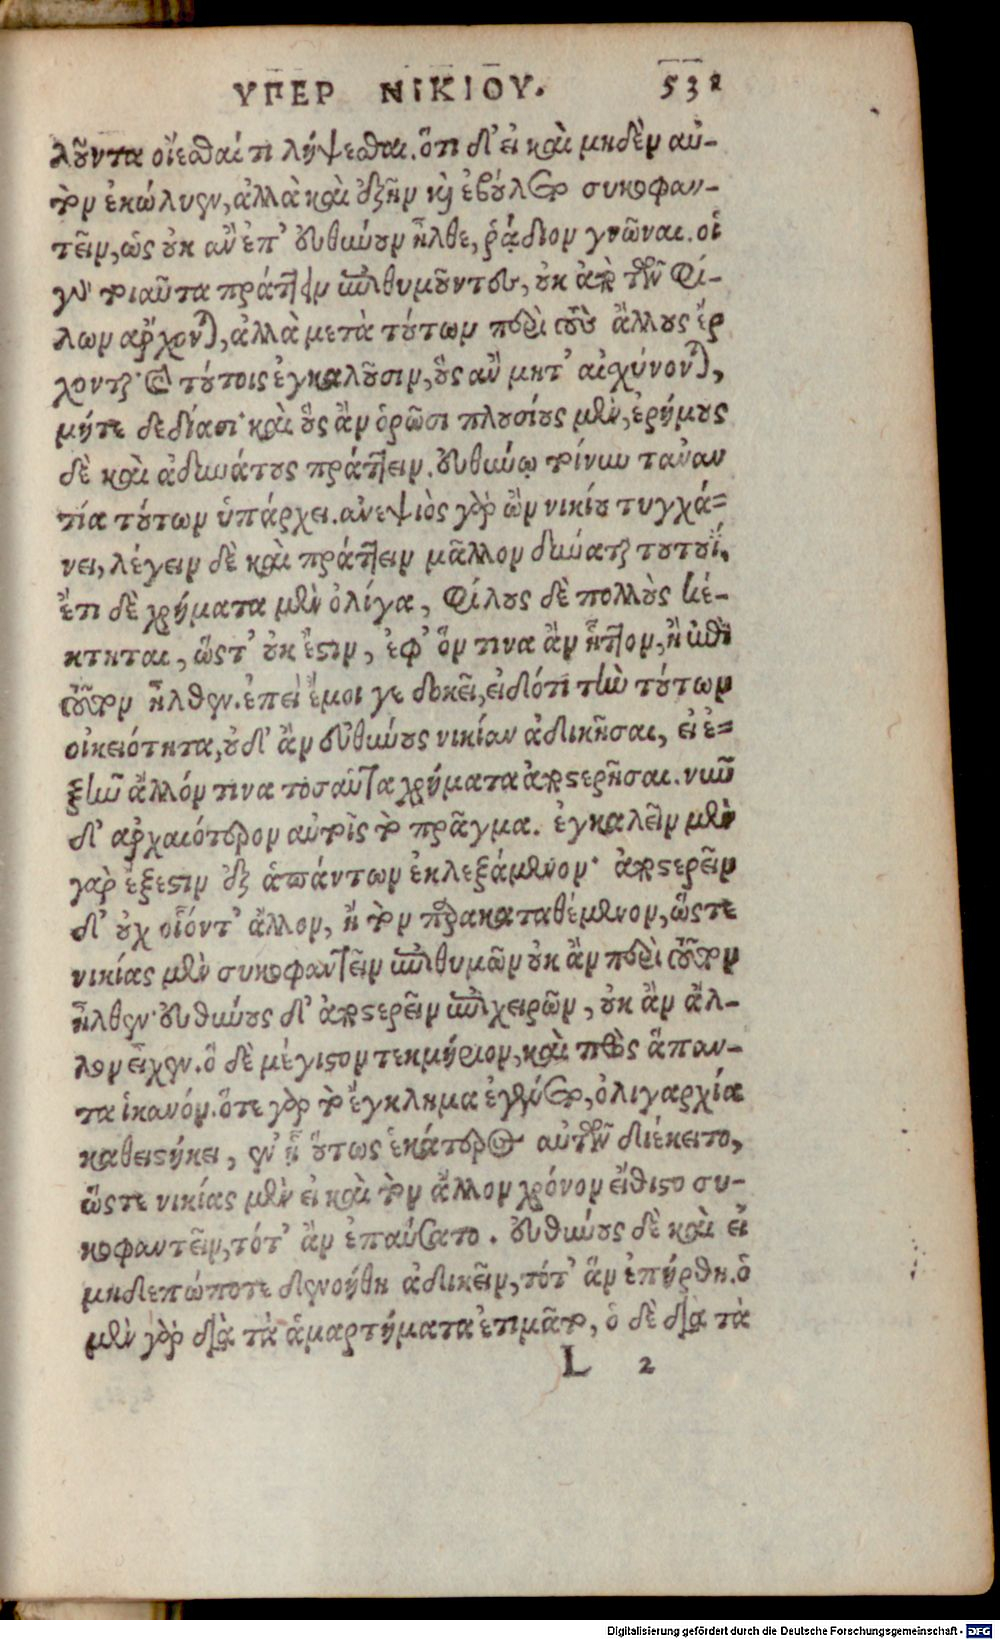 ΥΠΕΡ ΝΙΚΙΟΥ. 532
λοῦντα οἴεσθαί τι λήψεσθαι. ὅτι δ' εἰ καὶ μηδὲν αὐ-
τὸν ἐκώλυεν, ἀλλὰ καὶ ἐξῆν καὶ ἐβούλετο συκοφαν-
τεῖν, ὡς οὐκ ἂν ἐπ' εὐθύνουν ἦλθε, ῥᾴδιον γνῶναι. οἱ
γὰρ τοιαῦτα πράττειν ἐπιθυμοῦντες, οὐκ ἀπὸ τῶν φί-
λων ἄρχονται, ἀλλὰ μετὰ τούτων περὶ τοὺς ἄλλους ἔρ
χονται· καὶ τούτοις ἐγκαλοῦσιν, οὓς ἂν μητ' αἰσχύνονται,
μήτε δεδίασι· καὶ οὓς ἂν ὁρῶσι πλουσίους μὲν, ἐρήμους
δὲ καὶ ἀδυνάτους πράττειν. εὐθύνῳ τοίνυν ταναν
τία τούτων ὑπάρχει. ἀνεψιὸς γὰρ ὢν νικίου τυγχά-
νει, λέγειν δὲ καὶ πράττειν μᾶλλον δύναται τουτουί,
ἔτι δὲ χρήματα μὲν ὀλίγα, φίλους δὲ πολλοὺς κέ-
κτηται, ὥστ' οὐκ ἔστιν, ἐφ' ὅν τινα ἂν ἧττον, ἢ ἐπὶ
τοῦτον ἦλθεν. ἐπεὶ ἔμοι γε δοκεῖ, εἰδότι τὴν τούτων
οἰκειότητα, οὐδ' ἂν εὐθύνους νικίαν ἀδικῆσαι, εἰ ἐ-
ξῆν ἄλλόν τινα τοσαῦτα χρήματα ἀποστερῆσαι. νῦν
δ' ἀρχαιότερον αὐτοῖς τὸ πρᾶγμα. ἐγκαλεῖν μὲν
γὰρ ἔξεστιν ἐξ ἁπάντων ἐκλεξάμενον· ἀποστερεῖν
δ' οὐχ οἷόντ' ἄλλον, ἢ τὸν παρακαταθέμενον, ὥστε
νικίας μὲν συκοφαντεῖν ἐπιθυμῶν οὐκ ἂν περὶ τοῦτον
ἦλθεν· εὐθύνους δ' ἀποστερεῖν ἐπιχειρῶν, οὐκ ἂν ἄλ-
λον εἶχεν. ὃ δὲ μέγιστον τεκμήριον, καὶ πρὸς ἅπαν-
τα ἱκανόν. ὅτε γὰρ τὸ ἔγκλημα ἐγένετο, ὀλιγαρχία
καθειστήκει, ἐν ᾗ οὕτως ἑκάτερος αὐτῶν διέκειτο,
ὥστε νικίας μὲν εἰ καὶ τὸν ἄλλον χρόνον εἴθιστο συ-
κοφαντεῖν, τότ' ἂν ἐπαύσατο. εὐθύνους δὲ καὶ εἰ
μηδεπώποτε διενοήθη ἀδικεῖν, τότ' ἂν ἐπήρθη. ὁ
μὲν γὰρ διὰ τὰ ἁμαρτήματα ἐτιμᾶτο, ὁ δὲ διὰ τὰ
L 2
Digitalisierung gefördert durch die Deutsche Forschungsgemeinschaft - DFG